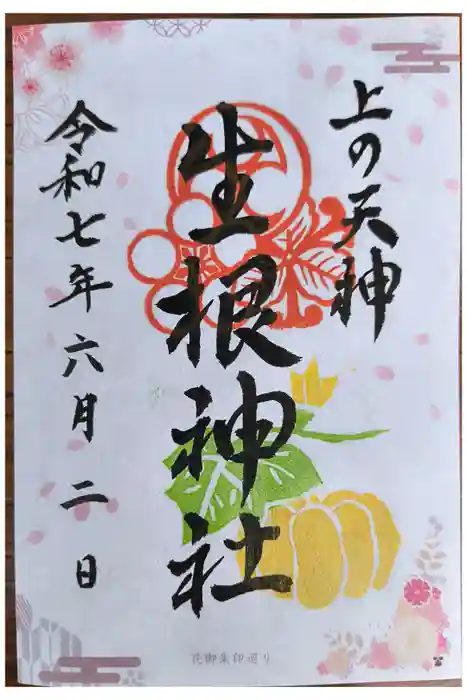 上の天神
生根神社
令和七年六月二日
花御朱印巡り